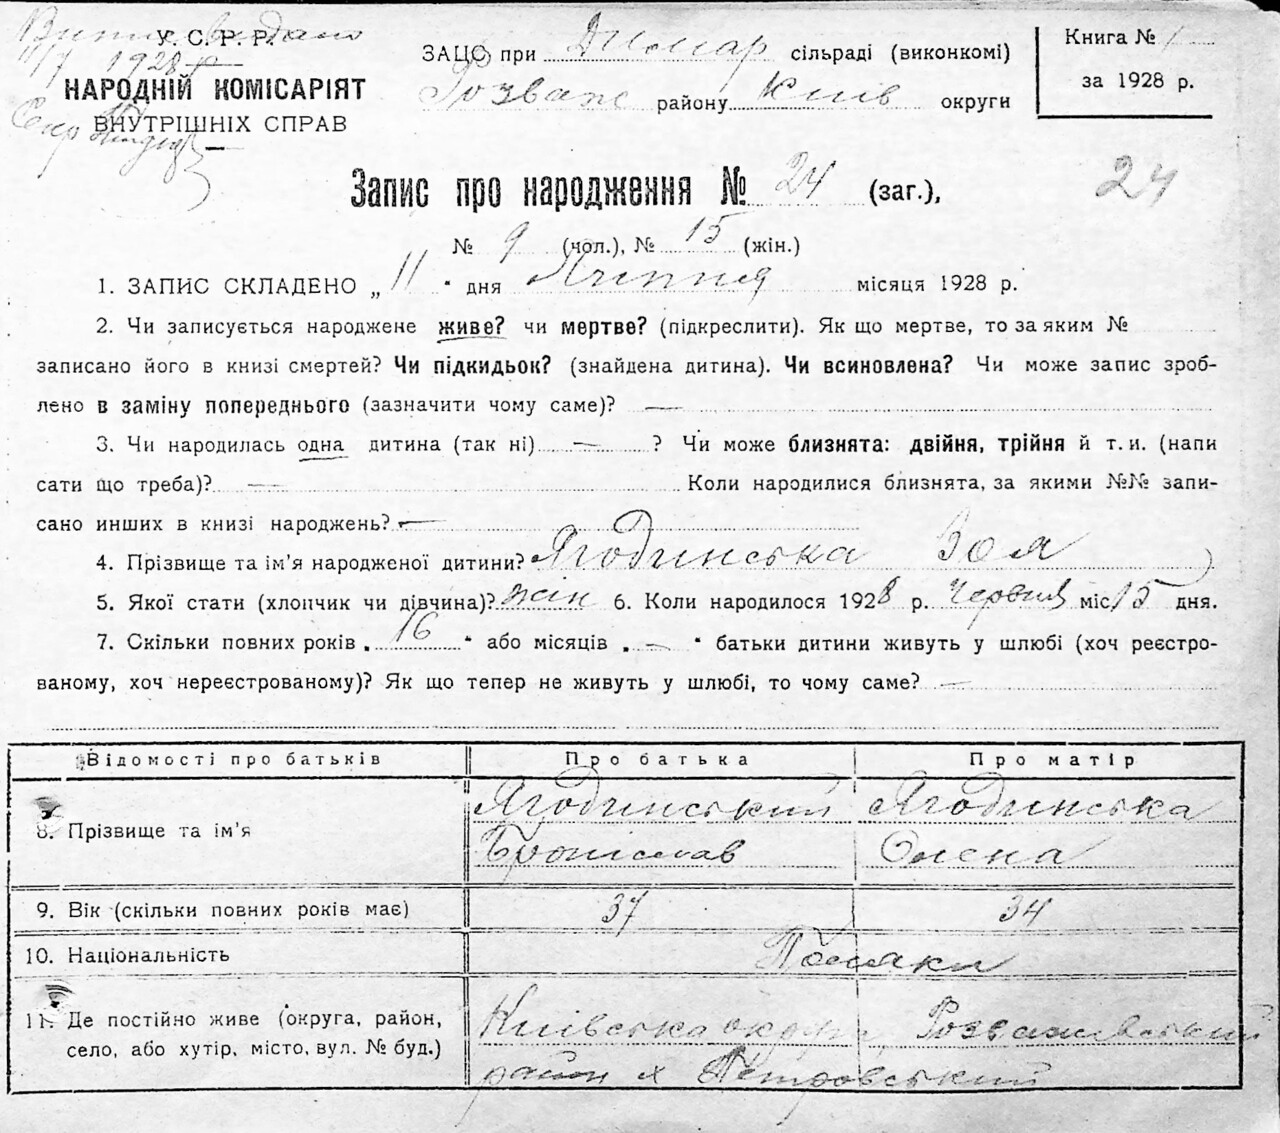 Витяг видано
У. С. Р. Р.
11/7 1928 р
НАРОДНІЙ КОМІСАРІЯТ
ВНУТРІШНІХ СПРАВ
Секр
ЗАЦС при Димар сільраді (виконкомі)
Розваж району Київ округи
Книга № 1
за 1928 р.
Запис про народження № 24 (заг.),
24
№ 9 (чол.), № 15 (жін.)
1. ЗАПИС СКЛАДЕНО „ 11 " дня Липня місяця 1928 р.
2. Чи записується народжене живе? чи мертве? (підкреслити). Як що мертве, то за яким №
записано його в книзі смертей? Чи підкидьок? (знайдена дитина). Чи всиновлена? Чи може запис зроб-
лено в заміну попереднього (зазначити чому саме)? —
3. Чи народилась одна дитина (так ні) — ? Чи може близнята: двійня, трійня й т. и. (напи
сати що треба)? — Коли народилися близнята, за якими №№ запи-
сано инших в книзі народжень? —
4. Прізвище та ім'я народженої дитини? Ягодинська Зоя
5. Якої стати (хлопчик чи дівчина)? жін 6. Коли народилося 1928 р. Червня міс 15 дня.
7. Скільки повних років „ 16 " або місяців „ — " батьки дитини живуть у шлюбі (хоч реєстро-
ваному, хоч нереєстрованому)? Як що тепер не живуть у шлюбі, то чому саме? —
Відомості про батьків Про батька Про матір
8. Прізвище та ім'я Ягодинський Броніслав Ягодинська Олена
9. Вік (скільки повних років має) 37 34
10. Національність Поляки
11. Де постійно живе (округа, район, Київська округа, Розважівський
село, або хутір, місто, вул. № буд.) район х Петровський